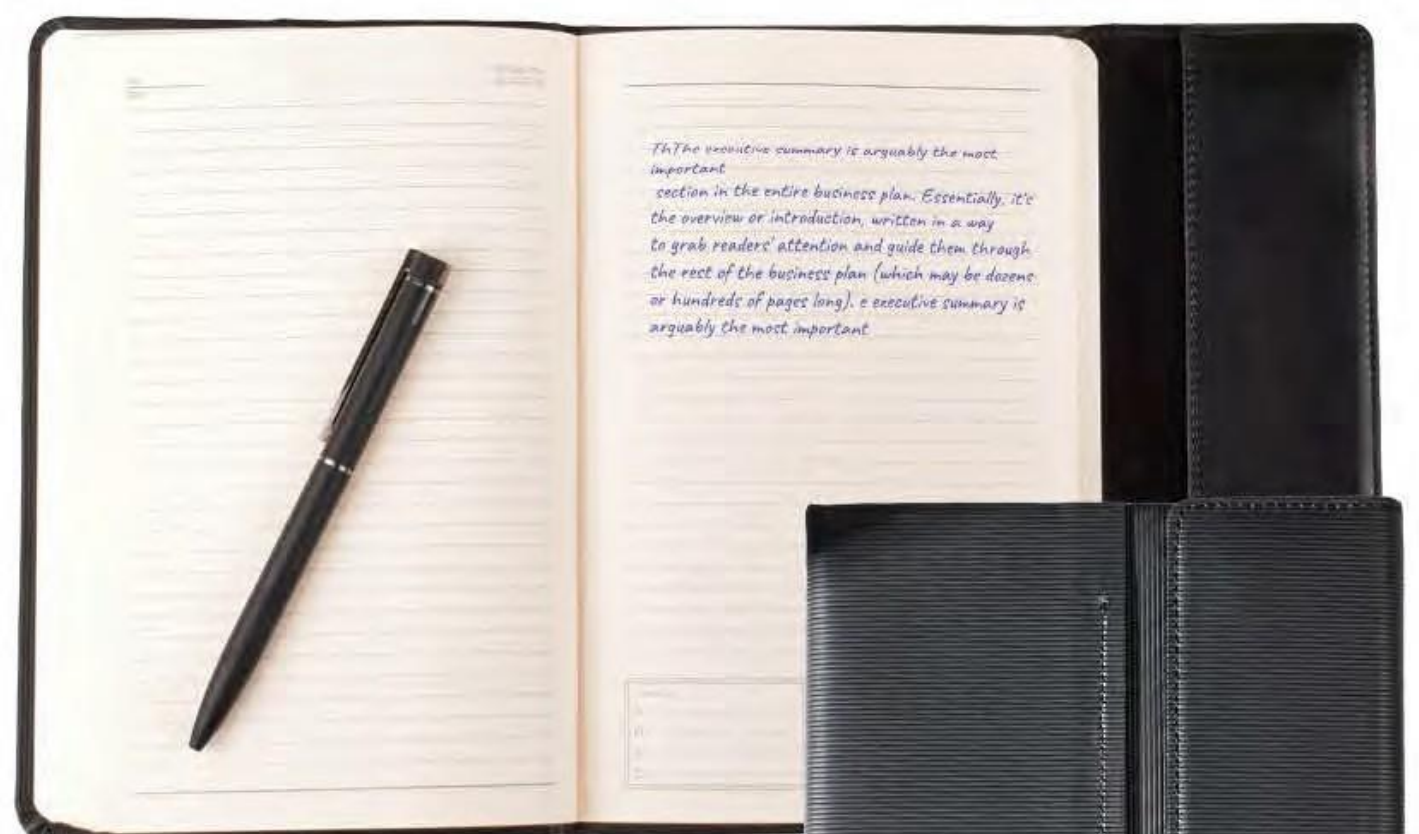 ThThe executive summary is arguably the most
important
section in the entire business plan. Essentially, it's
the overview or introduction, written in a way
to grab readers' attention and guide them through
the rest of the business plan (which may be dozens
or hundreds of pages long). e executive summary is
arguably the most important